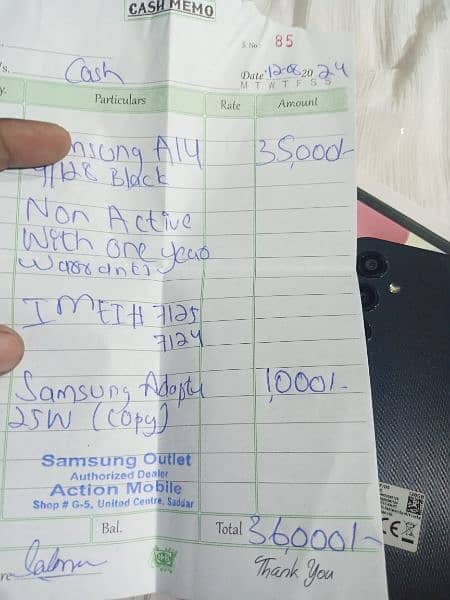 CASH MEMO
S.No 85
/s. Cash Date 12-08 20 24
M T W T F S S
y. Particulars Rate Amount
nsung A14 35,000/-
4/128 Black
Non Active
With one year
warranty
IMEI# 7125
7124
Samsung Adapter 1,000/-
25W (Copy)
Samsung Outlet
Authorized Dealer
Action Mobile
Shop # G-5, United Centre, Saddar
Bal. Total 36,000/-
re
Thank You
CE